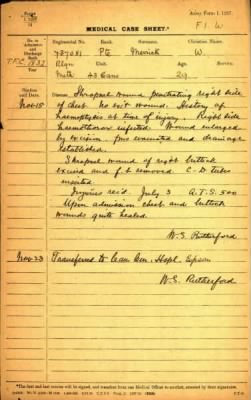 Army Form I. 1237.
F I W
MEDICAL CASE SHEET.*
No. in Admission and Discharge Book
Regimental No.
Rank.
Surname.
Christian Name.
787081
Pte
W.
Unit.
Age.
Service.
43 Cans
29
Station and Date.
Disease
Nov 15
Shrapnel wound penetrating right side
of chest. No exit wound. History of
haemoptysis at time of injury. Right side
Haemothorax infected. Wound enlarged
by incision, pus evacuated and drainage
established.
Shrapnel wound of right buttock
excised and f.b removed C-D. tubes
inserted.
Injuries rec'd. July 3 A.T.S. 500
Upon admission chest and buttock
wounds quite healed.
W.S. Rutherford
Nov 23
Transferred to Can. Gen. Hospl. Epsom
W.S. Rutherford
*The first and last entries will be signed, and transfers from one Medical Officer to another, attested by their signatures.